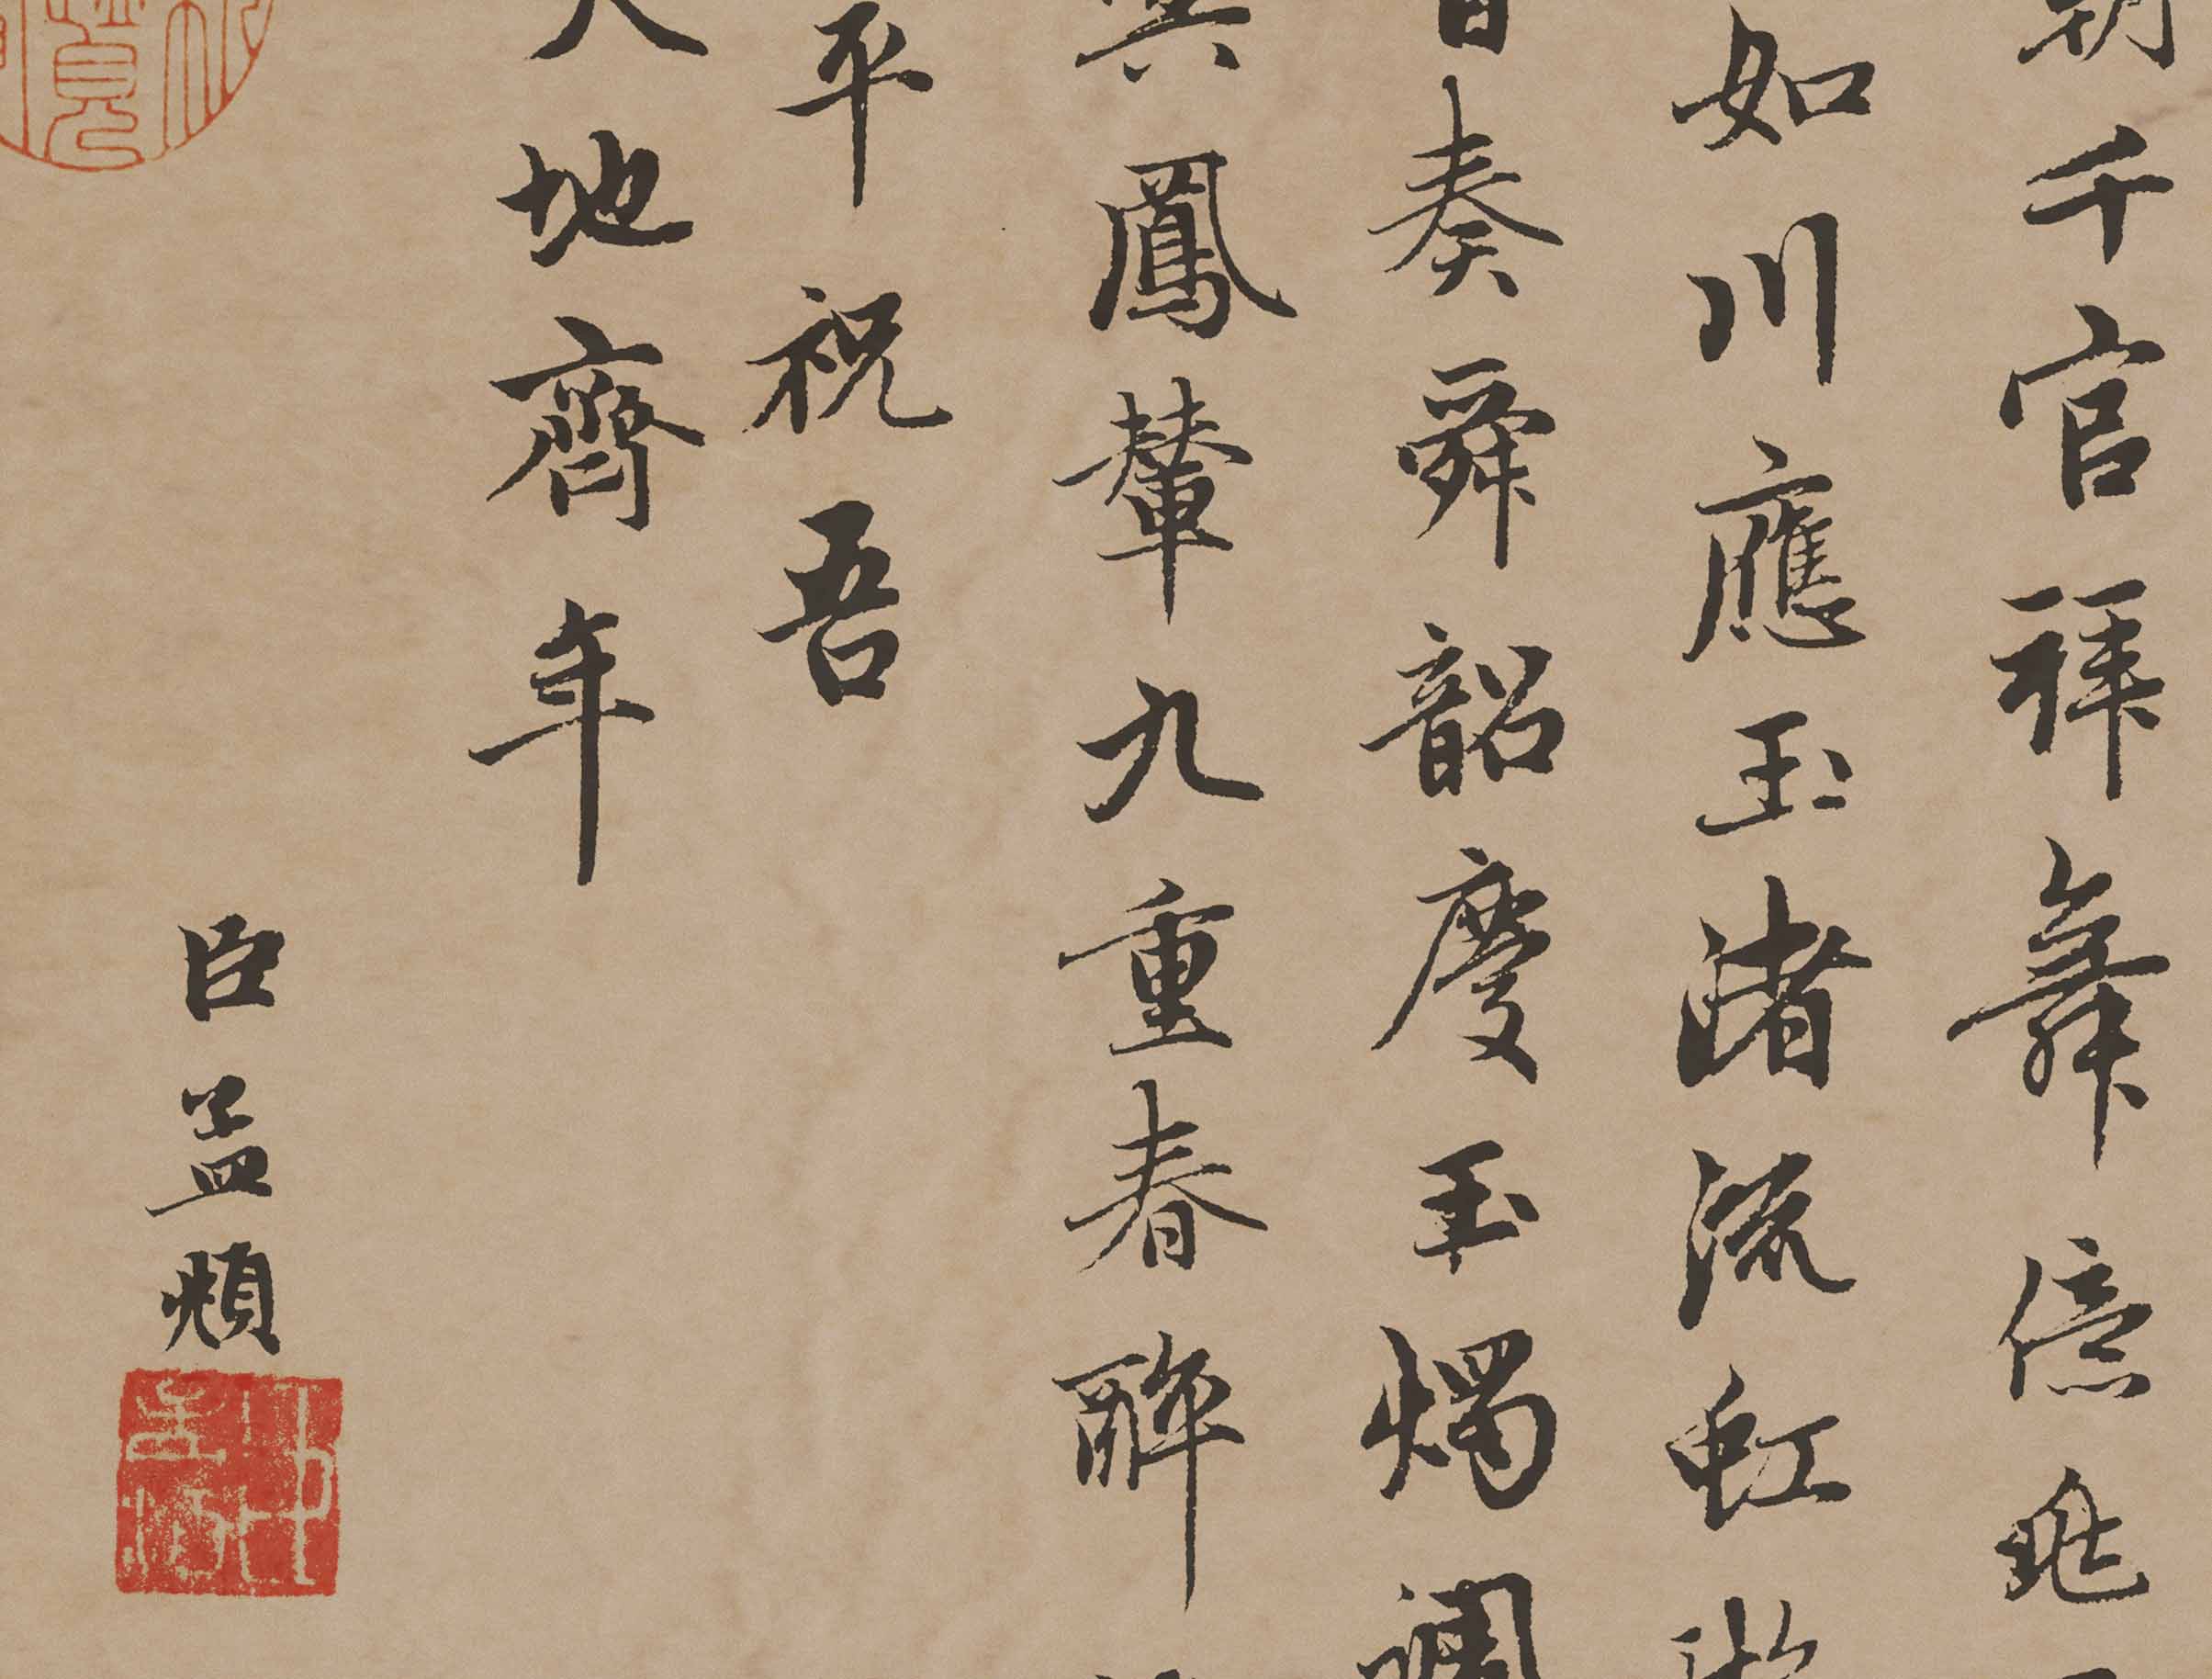 朝千官拜舞億兆
如川應玉渚流虹
奏舜韶慶玉燭調
鳳輦九重春醉
平祝吾
天地齊年
臣孟頫